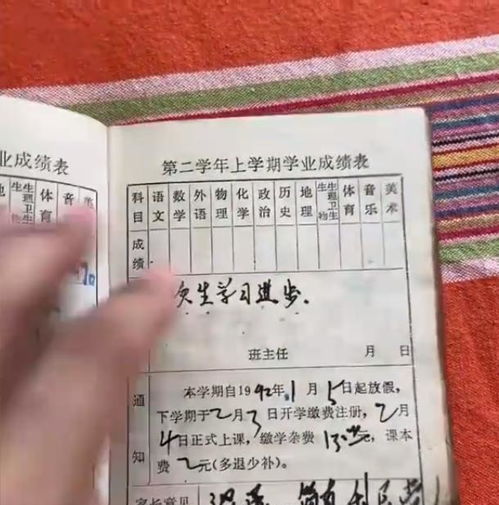 业成绩表
体育
音
第二学年上学期学业成绩表
科目 语文 数学 外语 物理 化学 政治 历史 地理 生理卫生生物 体育 音乐 美术
成绩
次生学习进步.
班主任 月 日
通知
本学期自1992年.1月5日起放假,
下学期于2月3日开学缴费注册,2月
4日正式上课,缴学杂费 元,课本
费2元(多退少补)。
家长意见